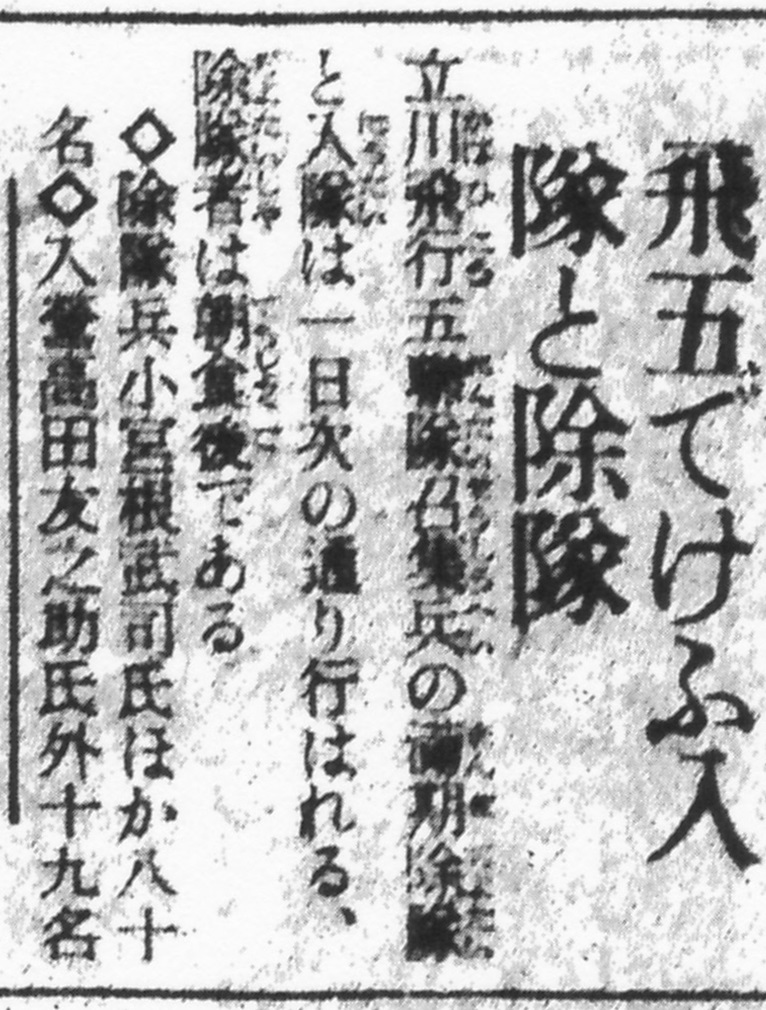 飛五でけふ入
隊と除隊
立川飛行五聯隊召集兵の前期除隊
と入隊は一日次の通り行はれる、
除隊者は朝食後である
◇除隊兵小宮根武司氏ほか八十
名◇入營高田友之助氏外十九名